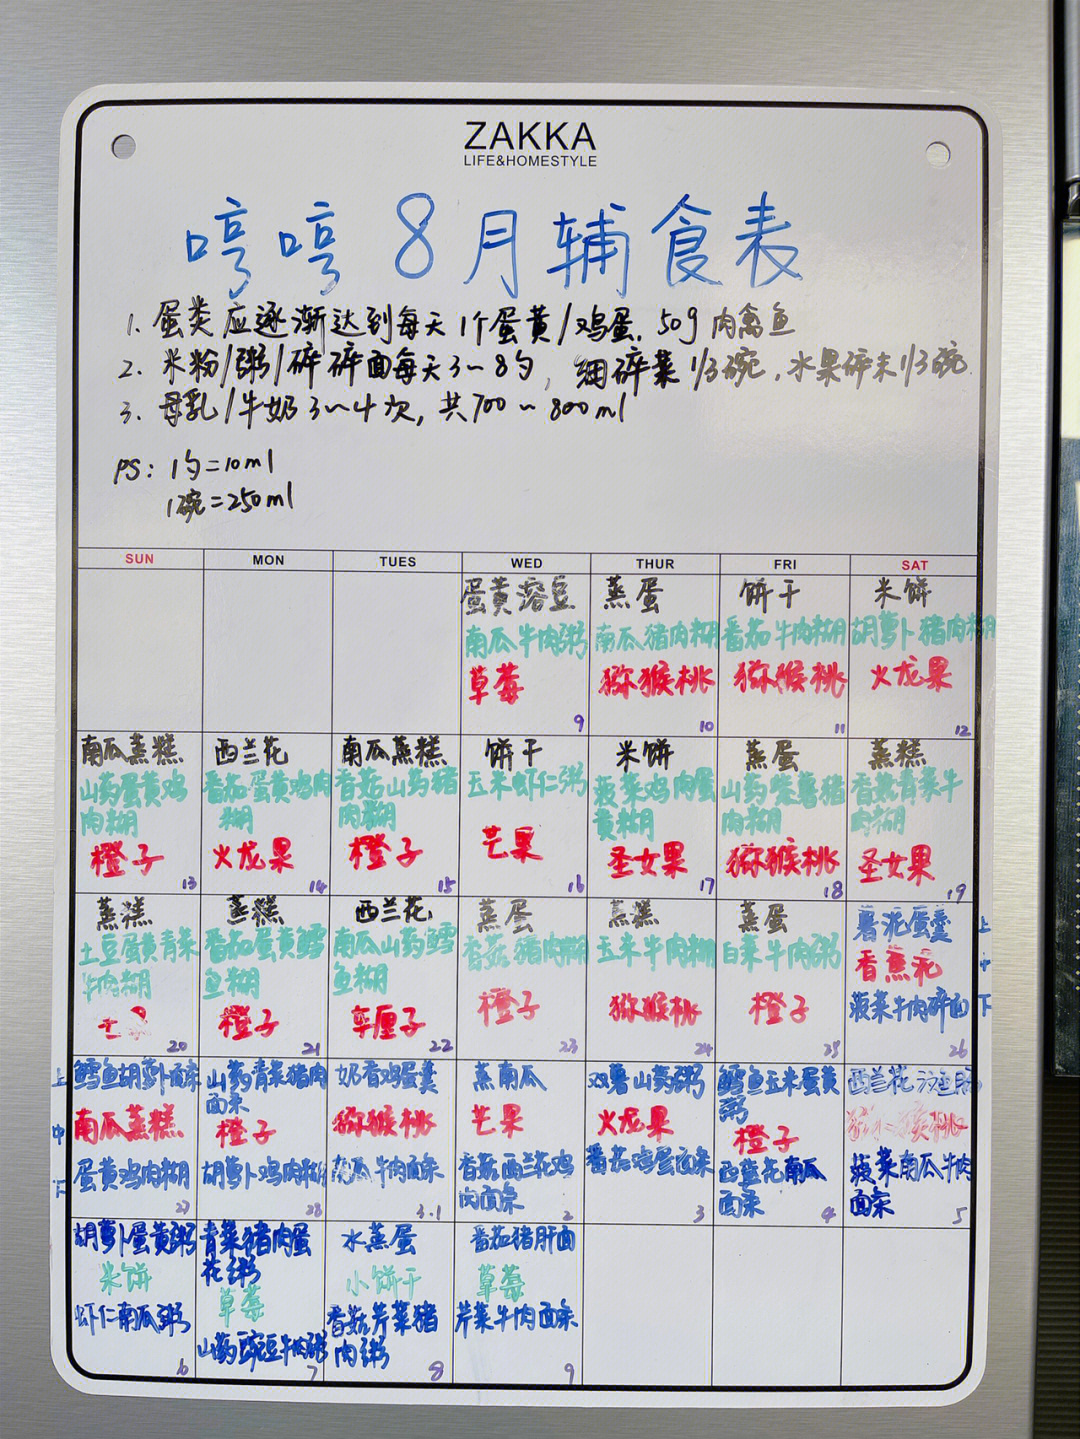 ZAKKA
LIFE&HOMESTYLE
哼哼8月辅食表
1. 蛋类应逐渐达到每天1个蛋黄/鸡蛋. 50g肉禽鱼
2. 米粉/粥/碎碎面每天3~8勺, 细碎菜1/3碗, 水果碎末1/3碗
3. 母乳/牛奶3~4次, 共700~800ml
PS: 1勺=10ml
1碗=250ml
SUN MON TUES WED THUR FRI SAT
蛋黄溶豆
南瓜牛肉粥
草莓
9
蒸蛋
南瓜猪肉糊
猕猴桃
10
饼干
番茄牛肉糊
猕猴桃
11
米饼
胡萝卜猪肉糊
火龙果
12
南瓜蒸糕
山药蛋黄鸡
肉糊
橙子
13
西兰花
番茄蛋黄鸡肉
糊
火龙果
14
南瓜蒸糕
香菇山药猪
肉糊
橙子
15
饼干
玉米虾仁粥
芒果
16
米饼
菠菜鸡肉蛋
黄糊
圣女果
17
蒸蛋
山药紫薯猪
肉糊
猕猴桃
18
蒸糕
香菇青菜牛
肉糊
圣女果
19
蒸糕
土豆蛋黄青菜
牛肉糊
20
蒸糕
番茄蛋黄鳕
鱼糊
橙子
21
西兰花
南瓜山药鳕
鱼糊
车厘子
22
蒸蛋
香菇猪肉糊
橙子
23
蒸糕
玉米牛肉糊
猕猴桃
24
蒸蛋
白菜牛肉粥
橙子
25
薯泥蛋羹 上
香蕉泥 中
菠菜牛肉碎面 下
26
上 鳕鱼胡萝卜面条
中 南瓜蒸糕
下 蛋黄鸡肉糊
27
山药青菜猪肉
面条
橙子
胡萝卜鸡肉糊
28
奶香鸡蛋羹
猕猴桃
南瓜牛肉面条
3.1
蒸南瓜
芒果
香菇西兰花鸡
肉面条
2
双薯山药粥
火龙果
番茄鸡蛋面条
3
鳕鱼玉米蛋黄
粥
橙子
西兰花南瓜
面条
4
西兰花
猕猴桃
菠菜南瓜牛肉
面条
5
胡萝卜蛋黄粥
米饼
虾仁南瓜粥
6
青菜猪肉蛋
花粥
草莓
山药豌豆牛肉粥
7
水蒸蛋
小饼干
香菇芹菜猪
肉粥
8
番茄猪肝面
草莓
芹菜牛肉面条
9